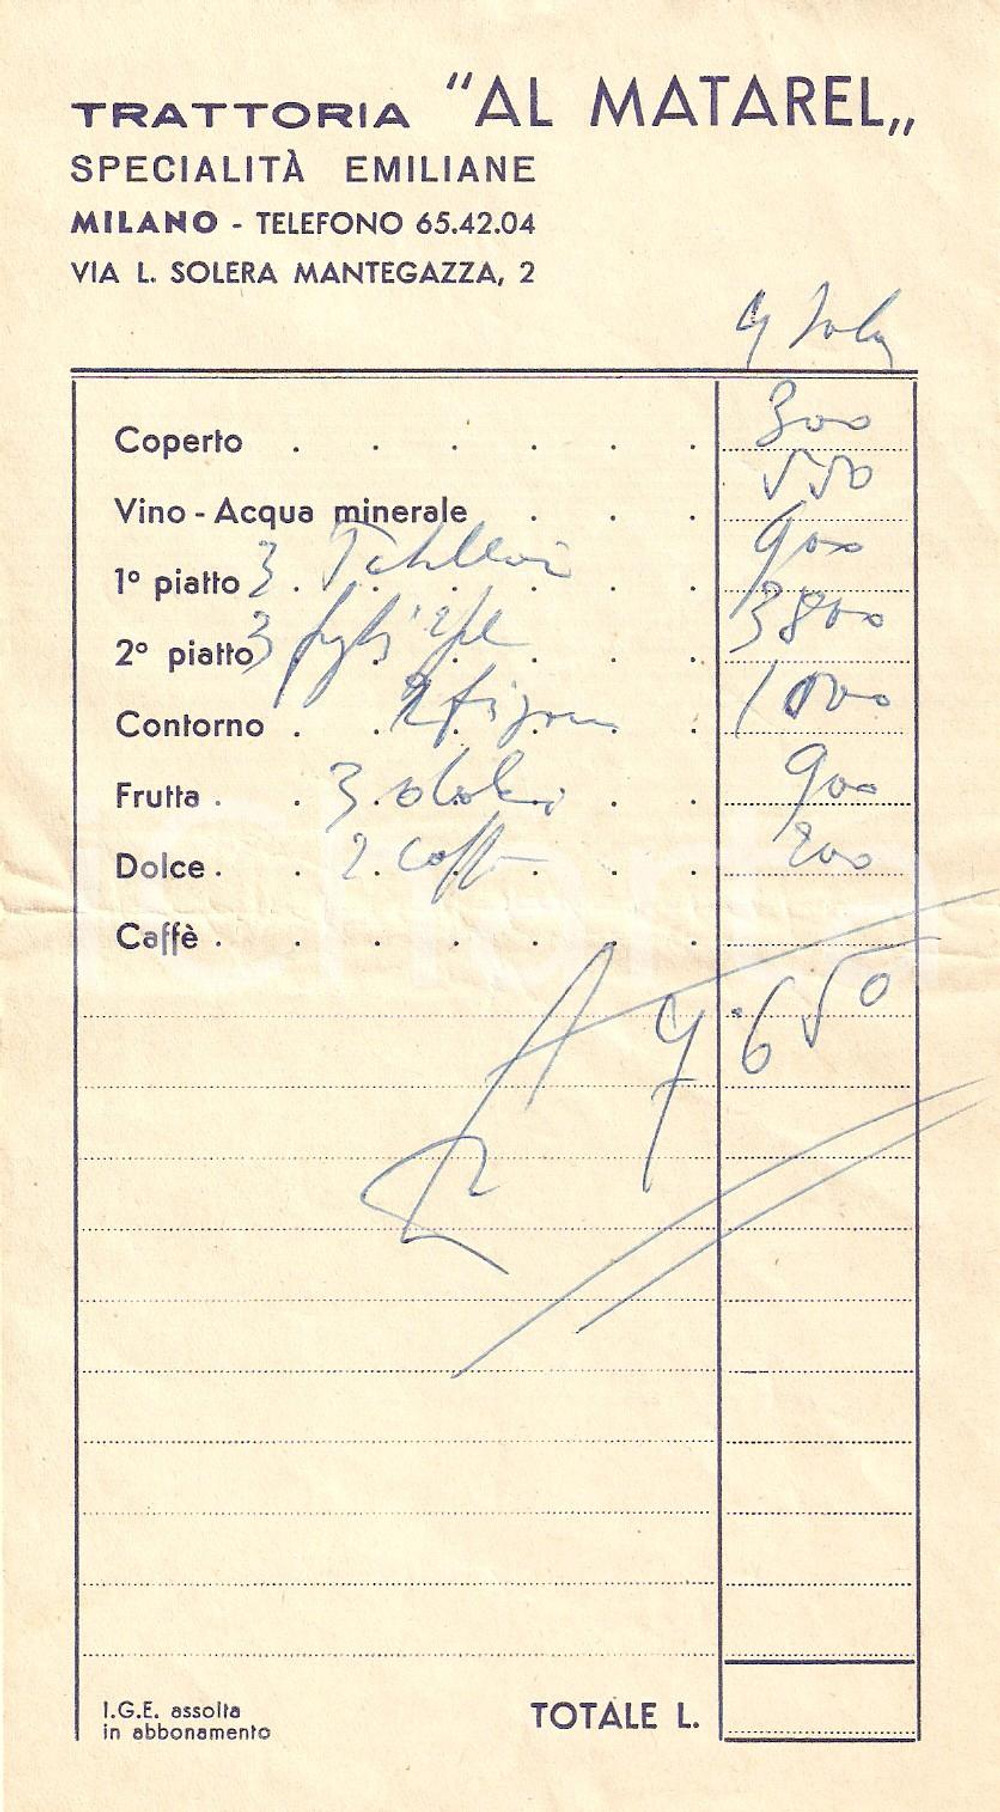 TRATTORIA "AL MATAREL„
SPECIALITÀ EMILIANE
MILANO - TELEFONO 65.42.04
VIA L. SOLERA MANTEGAZZA, 2
Coperto . . . . . . 300
Vino - Acqua minerale . . . 550
1º piatto 3 . . . . . . 900
2º piatto 3 . . . . 3800
Contorno . . . . 1000
Frutta . . 3 dolci . . 900
Dolce . . 2 caffè . . . 200
Caffè . . . . . . .
7.650
I.G.E. assolta
in abbonamento
TOTALE L.